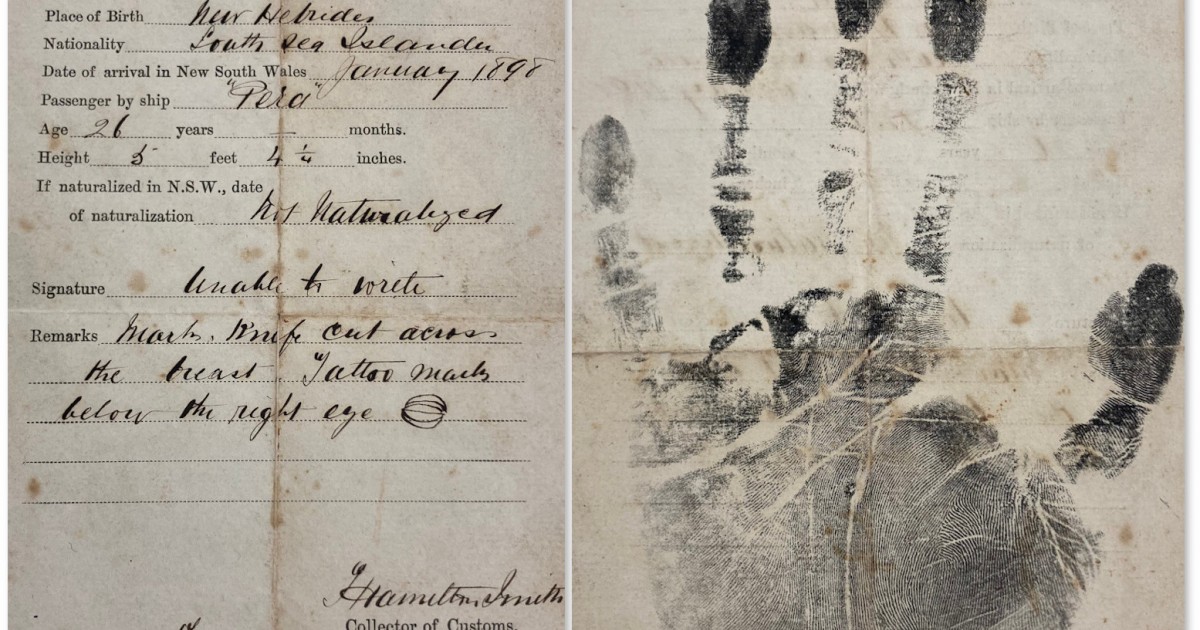 Place of Birth New Hebrides
Nationality South Sea Islander
Date of arrival in New South Wales January 1898
Passenger by ship "Pera"
Age 26 years — months.
Height 5 feet 4 ¼ inches.
If naturalized in N.S.W., date
of naturalization Not Naturalized
Signature Unable to write
Remarks Marks. Knife cut across
the breast. Tattoo marks
below the right eye
Hamilton Smith
Collector of Customs.